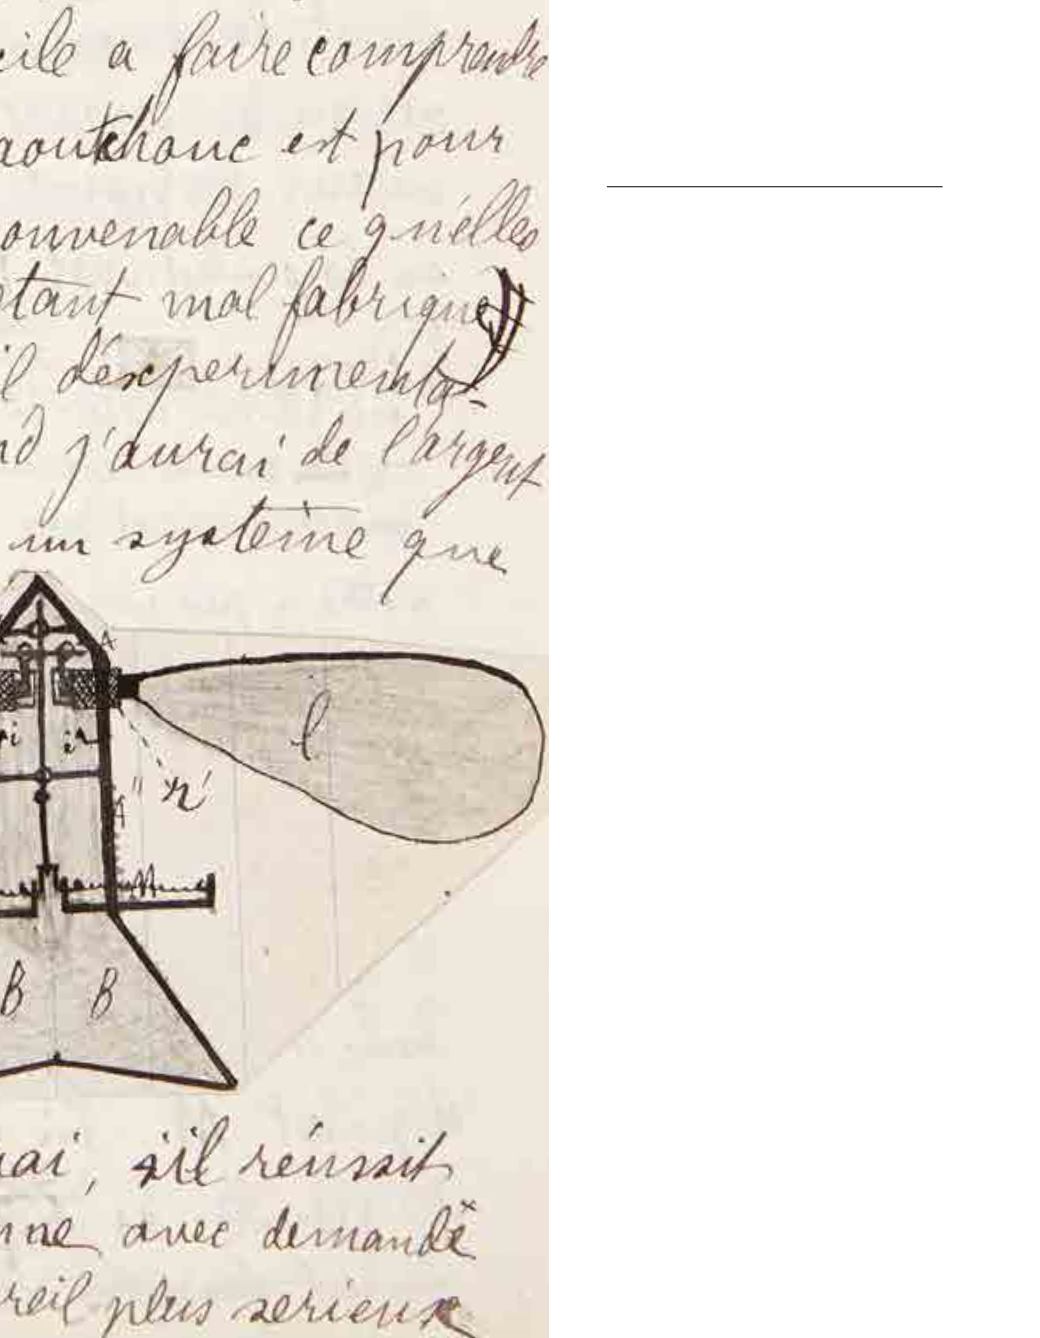 cile a faire comprendre
aoutchouc est pour
onvenable ce qu'elles
etant mal fabriqué
il d'éxperimenta-
nd j'aurai de l'argent
un systeime que
A
l
i
i
r'
A"
B B
rai, s'il réussit
nne avec demandé
reil plus serieux